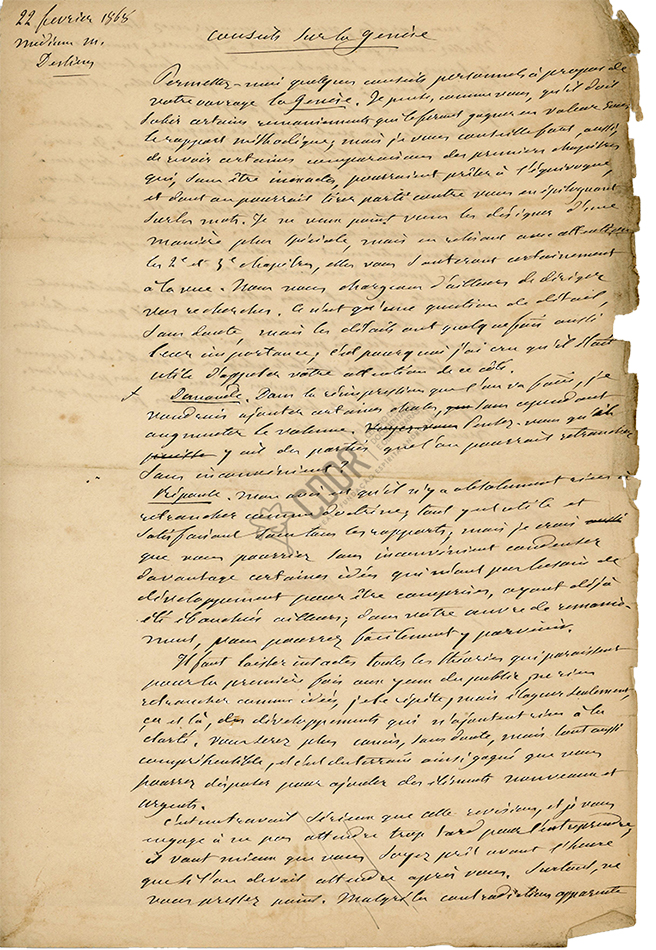 22 février 1868
médium m.
Desliens
Conseils sur la Genèse
Permettez-moi quelques conseils personnels à propos de
votre ouvrage la Genèse. Je pense, comme vous, qu'il doit
subir certains remaniements qui le feront gagner en valeur sous
le rapport méthodique; mais je vous conseille aussi
de revoir certaines comparaisons des premiers chapitres
qui, sans être inexactes, pourraient prêter à l'équivoque,
et dont on pourrait tirer parti contre vous en épiloguant
sur les mots. Je ne veux point vous les désigner d'une
manière plus spéciale, mais en relisant avec attention
les 2e et 3e chapitres, elles vous sauteront certainement
à la vue. Nous nous chargeons d'ailleurs de diriger
vos recherches. Ce n'est qu'une question de détail,
sans doute, mais les détails ont quelquefois aussi
leur importance; c'est pourquoi j'ai cru qu'il était
utile d'appeler votre attention de ce côté.
Demande. Dans la réimpression que l'on va faire, je
voudrais ajouter certaines choses, sans cependant
augmenter le volume. Voyez-vous Pensez-vous qu'il
puisse y ait des parties que l'on pourrait retrancher
sans inconvénient?
Réponse. Mon avis est qu'il n'y a absolument rien à
retrancher comme doctrine; tout y est utile et
satisfaisant sous tous les rapports; mais je crois aussi
que vous pourriez sans inconvénient condenser
davantage certaines idées qui n'ont pas besoin de
développement pour être comprises, ayant déjà
été ébauchées ailleurs; dans votre œuvre de remanie-
ment, vous pourrez facilement y parvenir.
Il faut laisser intactes toutes les théories qui paraissent
pour la première fois aux yeux du public; ne rien
retrancher comme idées, je le répète, mais élaguer seulement,
çà et là, des développements qui n'ajoutent rien à la
clarté. Vous serez plus concis, sans doute, mais tout aussi
compréhensible, et c'est du terrain ainsi gagné que vous
pourrez disposer pour ajouter des éléments nouveaux et
urgents.
C'est un travail sérieux que cette révision, et je vous
engage à ne pas attendre trop tard pour l'entreprendre;
il vaut mieux que vous soyez prêt avant l'heure
que si l'on devait attendre après vous. Surtout, ne
vous pressez point. Malgré la contradiction apparente
CDOR